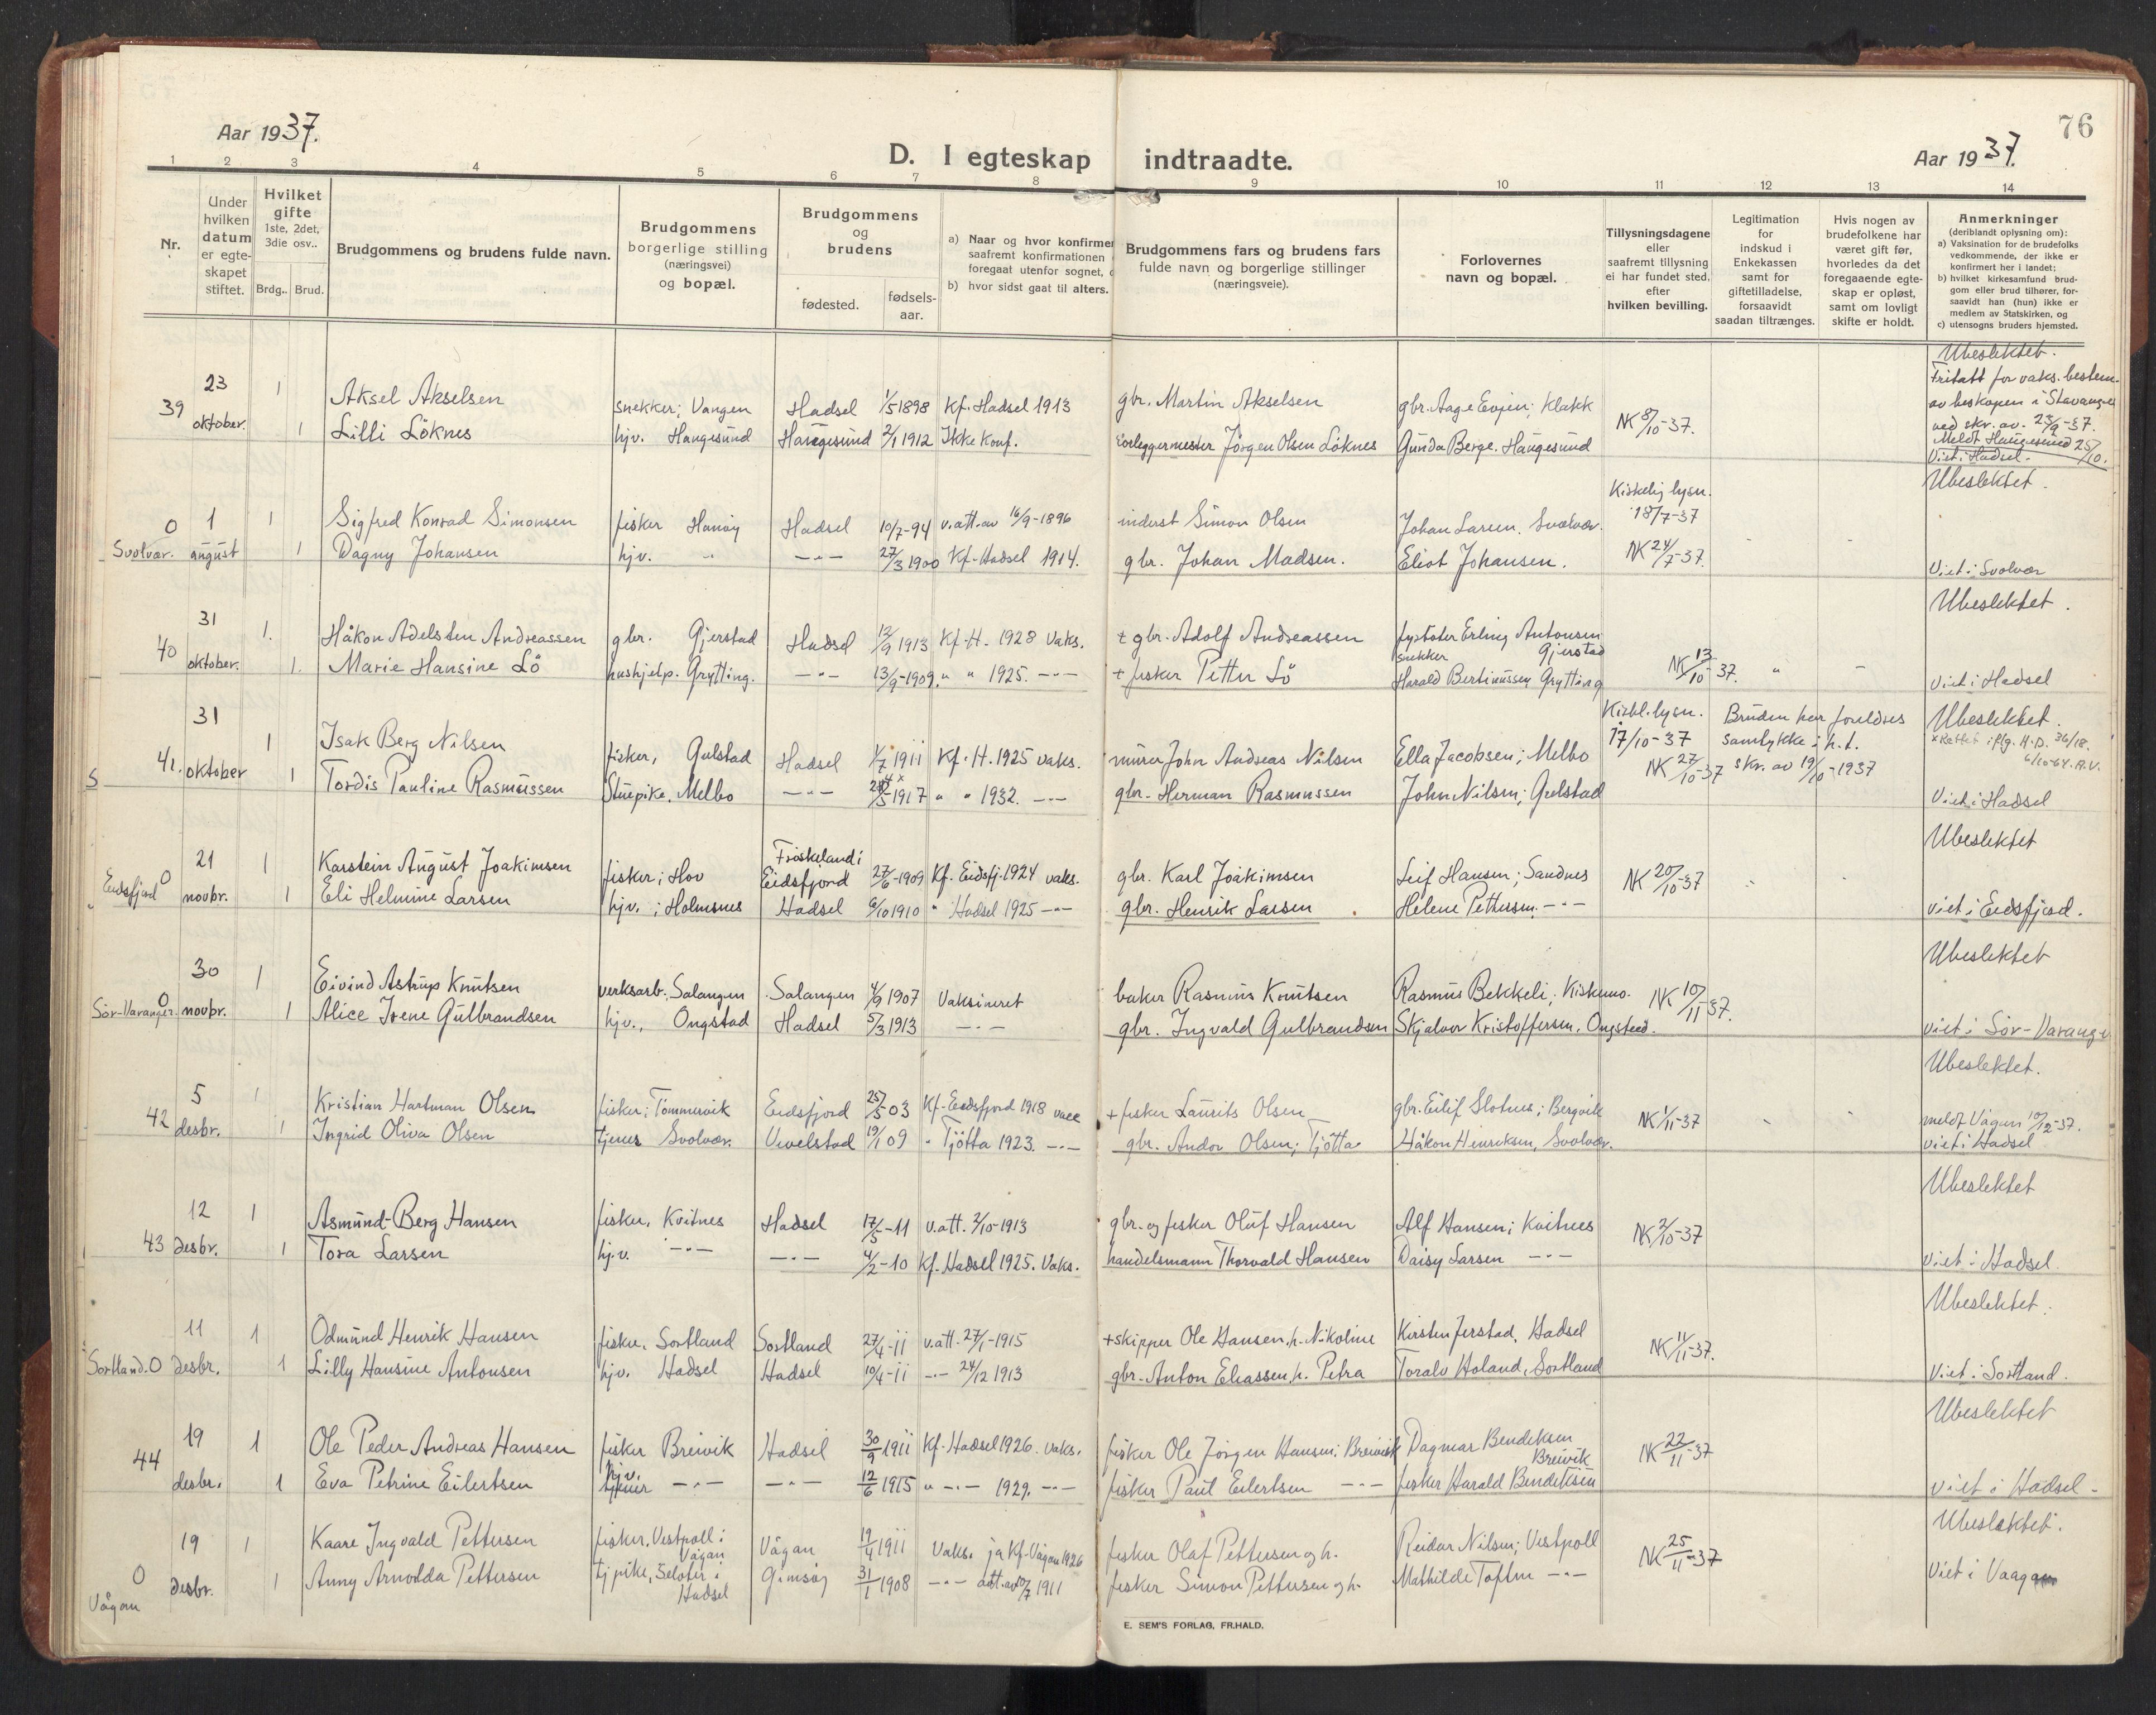 76
Aar 1937.
D. I egteskap indtraadte.
Aar 1937.
1 2 3 4 5 6 7 8 9 10 11 12 13 14
Nr.
Under hvilken datum er egteskapet stiftet.
Hvilket gifte 1ste, 2det, 3die osv..
Brdg.. Brud.
Brudgommens og brudens fulde navn.
Brudgommens borgerlige stilling (næringsvei) og bopæl.
Brudgommens og brudens
fødested.
fødsels-aar.
a) Naar og hvor konfirmer saafremt konfirmationen foregaat utenfor sognet,
b) hvor sidst gaat til alters.
Brudgommens fars og brudens fars fulde navn og borgerlige stillinger (næringsveie).
Forlovernes navn og bopæl.
Tillysningsdagene eller saafremt tillysning ei har fundet sted, efter hvilken bevilling.
Legitimation for indskud i Enkekassen samt for giftetilladelse, forsaavidt saadan tiltrænges.
Hvis nogen av brudefolkene har været gift før, hvorledes da det foregaaende egteskap er opløst, samt om lovligt skifte er holdt.
Anmerkninger (deriblandt oplysning om):
a) Vaksination for de brudefolks vedkommende, der ikke er konfirmert her i landet;
b) hvilket kirkesamfund brudgom eller brud tilhører, forsaavidt han (hun) ikke er medlem av Statskirken, og
c) utensogns bruders hjemsted.
Ubeslektet.
39 23 oktober. 1 Aksel Akselsen snekker; Vangen Hadsel 1/5 1898 Kf. Hadsel 1913 gbr. Martin Akselsen gbr. Aage Evjen; Klakk NK 8/10-37. Fritatt for vaks. bestem. av biskopen i Stavanger ved skr. av. 23/9-37.
1 Lilli Löknes hjv. Haugesund Haugesund 2/1 1912 Ikke Konf. rörleggermester Jörgen Olsen Löknes Gunda Berge. Haugesund Meldt Haugesund 25/10. Viet i Hadsel.
Ubeslektet.
0 Svolvær. 1 august 1 Sigfred Konrad Simonsen fisker Hanöy Hadsel 10/7-94 v.att. av 16/9-1896 inderst Simon Olsen Johan Larsen. Svolvær. Kirkelig lysn. 18/7-37
1 Dagny Johansen hjv. " -"- 27/3 1900 Kf. Hadsel 1914. gbr. Johan Madsen. Eliot Johansen. NK 24/7-37. Viet i Svolvær
Ubeslektet.
40 31 oktober. 1. Håkon Adelsten Andreassen gbr. Gjerstad Hadsel 12/9 1913 Kf. H. 1928 Vaks. + gbr. Adolf Andreassen Erling Antonsen Gjerstad
1. Marie Hansine Lö hushjelp. Grytting. -"- 13/9-1909. " " 1925. -"- + fisker Petter Lö snekker Harald Bertinussen Grytting NK 13/10-37. Viet i Hadsel
Ubeslektet.
41. 31 oktober 1 Isak Berg Nilsen fisker, Gulstad Hadsel 1/7 1911 Kf. H. 1925 vaks. murer John Andreas Nilsen Ella Jacobsen; Melbo Kirkl. lysn. 17/10-37 Bruden har foreldres samtykke i h.t. skr. av 19/10-1937 x Rettet iflg. H.D. 36/18. 6/10-64. A.V.
S 1 Tordis Pauline Rasmussen Stuepike, Melbo -"- /5-1917 " " 1932. -"- gbr. Herman Rasmussen John Nilsen; Gulstad NK 27/10-37 Viet i Hadsel
Ubeslektet
Eidsfjord 0 21 novbr. 1 Karstein August Joakimsen fisker; Hov Fröskeland i Eidsfjord 27/6-1909 Kf. Eidsfj. 1924 vaks. gbr. Karl Joakimsen Leif Hansen; Sandnes NK 20/10-37
1 Eli Helmine Larsen hjv. ; Holmsnes Hadsel 9/10 1910 " Hadsel 1925 -"- gbr. Henrik Larsen Helene Pettersen. -"- Viet i Eidsfjord.
Ubeslektet
Sör-Varanger. 0 30 novbr. 1 Eivind Astrup Knutsen verksarb. Salangen Salangen 4/9 1907 Vaksineret baker Rasmus Knutsen Rasmus Bekkeli, Kirkemo. NK 10/11-37.
1 Alice Irene Gulbrandsen hjv., Ongstad Hadsel 5/3 1913 -"- gbr. Ingvald Gulbrandsen Skjalver Kristoffersen, Ongstad. Viet i Sör-Varanger
Ubeslektet.
42 5 desbr. 1 Kristian Hartman Olsen fisker; Tömmervik Eidsfjord 25/5 03 Kf. Eidsfjord 1918 vacc + fisker Laurits Olsen gbr. Eilif Slotnes; Bergvik NK 1/11-37 meldt Vågan 10/12-37.
1 Ingrid Oliva Olsen tjener Svolvær. Vevelstad 19/1 09 " Tjötta 1923. -"- gbr. Andor Olsen; Tjötta Håkon Henriksen, Svolvær. viet i Hadsel
Ubeslektet
43 12 desbr. 1 Asmund Berg Hansen fisker, Kvitnes Hadsel 17/5-11 v.att. 2/10-1913 gbr. og fisker Oluf Hansen Alf Hansen; Kvitnes NK 2/10-37
1 Tora Larsen hj.v. -"- -"- 4/2-10 Kf. Hadsel 1925. Vaks. handelsmann Thorvald Hansen Daisy Larsen -"- Viet i Hadsel.
Ubeslektet.
Sortland. 0 11 desbr. 1 Odmund Henrik Hansen fisker. Sortland Sortland 27/4-11 v.att. 27/1-1915 + skipper Ole Hansen. h. Nikoline Kirsten Jerstad, Hadsel NK 11/11-37.
1 Lilly Hansine Antonsen hjv. Hadsel Hadsel 10/4-11 -"- 24/12 1913 gbr. Anton Eliassen h. Petra Toralv Holand, Sortland Viet i Sortland.
Ubeslektet
44 19 desbr. 1 Ole Peder Andreas Hansen fisker Breivik Hadsel 30/9 1911 Kf. Hadsel 1926. vaks. fisker Ole Jörgen Hansen; Breivik Dagmar Bendeksen Breivik NK 22/11-37
1 Eva Petrine Eilertsen hjv. tjener -"- -"- 12/6 1915 " -"- 1929. -"- fisker Paul Eilertsen -"- fisker Harald Bendeksen viet i Hadsel.
Ubeslektet.
0 Vågan 19 desbr. 1 Kaare Ingvald Pettersen fisker, Vestpoll i Vågan Vågan 19/4 1911 Vaks. ja Kf. Vågan 1926 fisker Olaf Pettersen og h. Reidar Nilsen; Vestpoll NK 25/11-37
1 Anny Arnolda Pettersen tj.pike, Seloter i Hadsel Gimsöy 31/1 1908 -"- att. av 10/7 1911 fisker Simon Pettersen og h. Mathilde Toften -"- Viet i Vaagan
E. SEM'S FORLAG, FR.HALD.